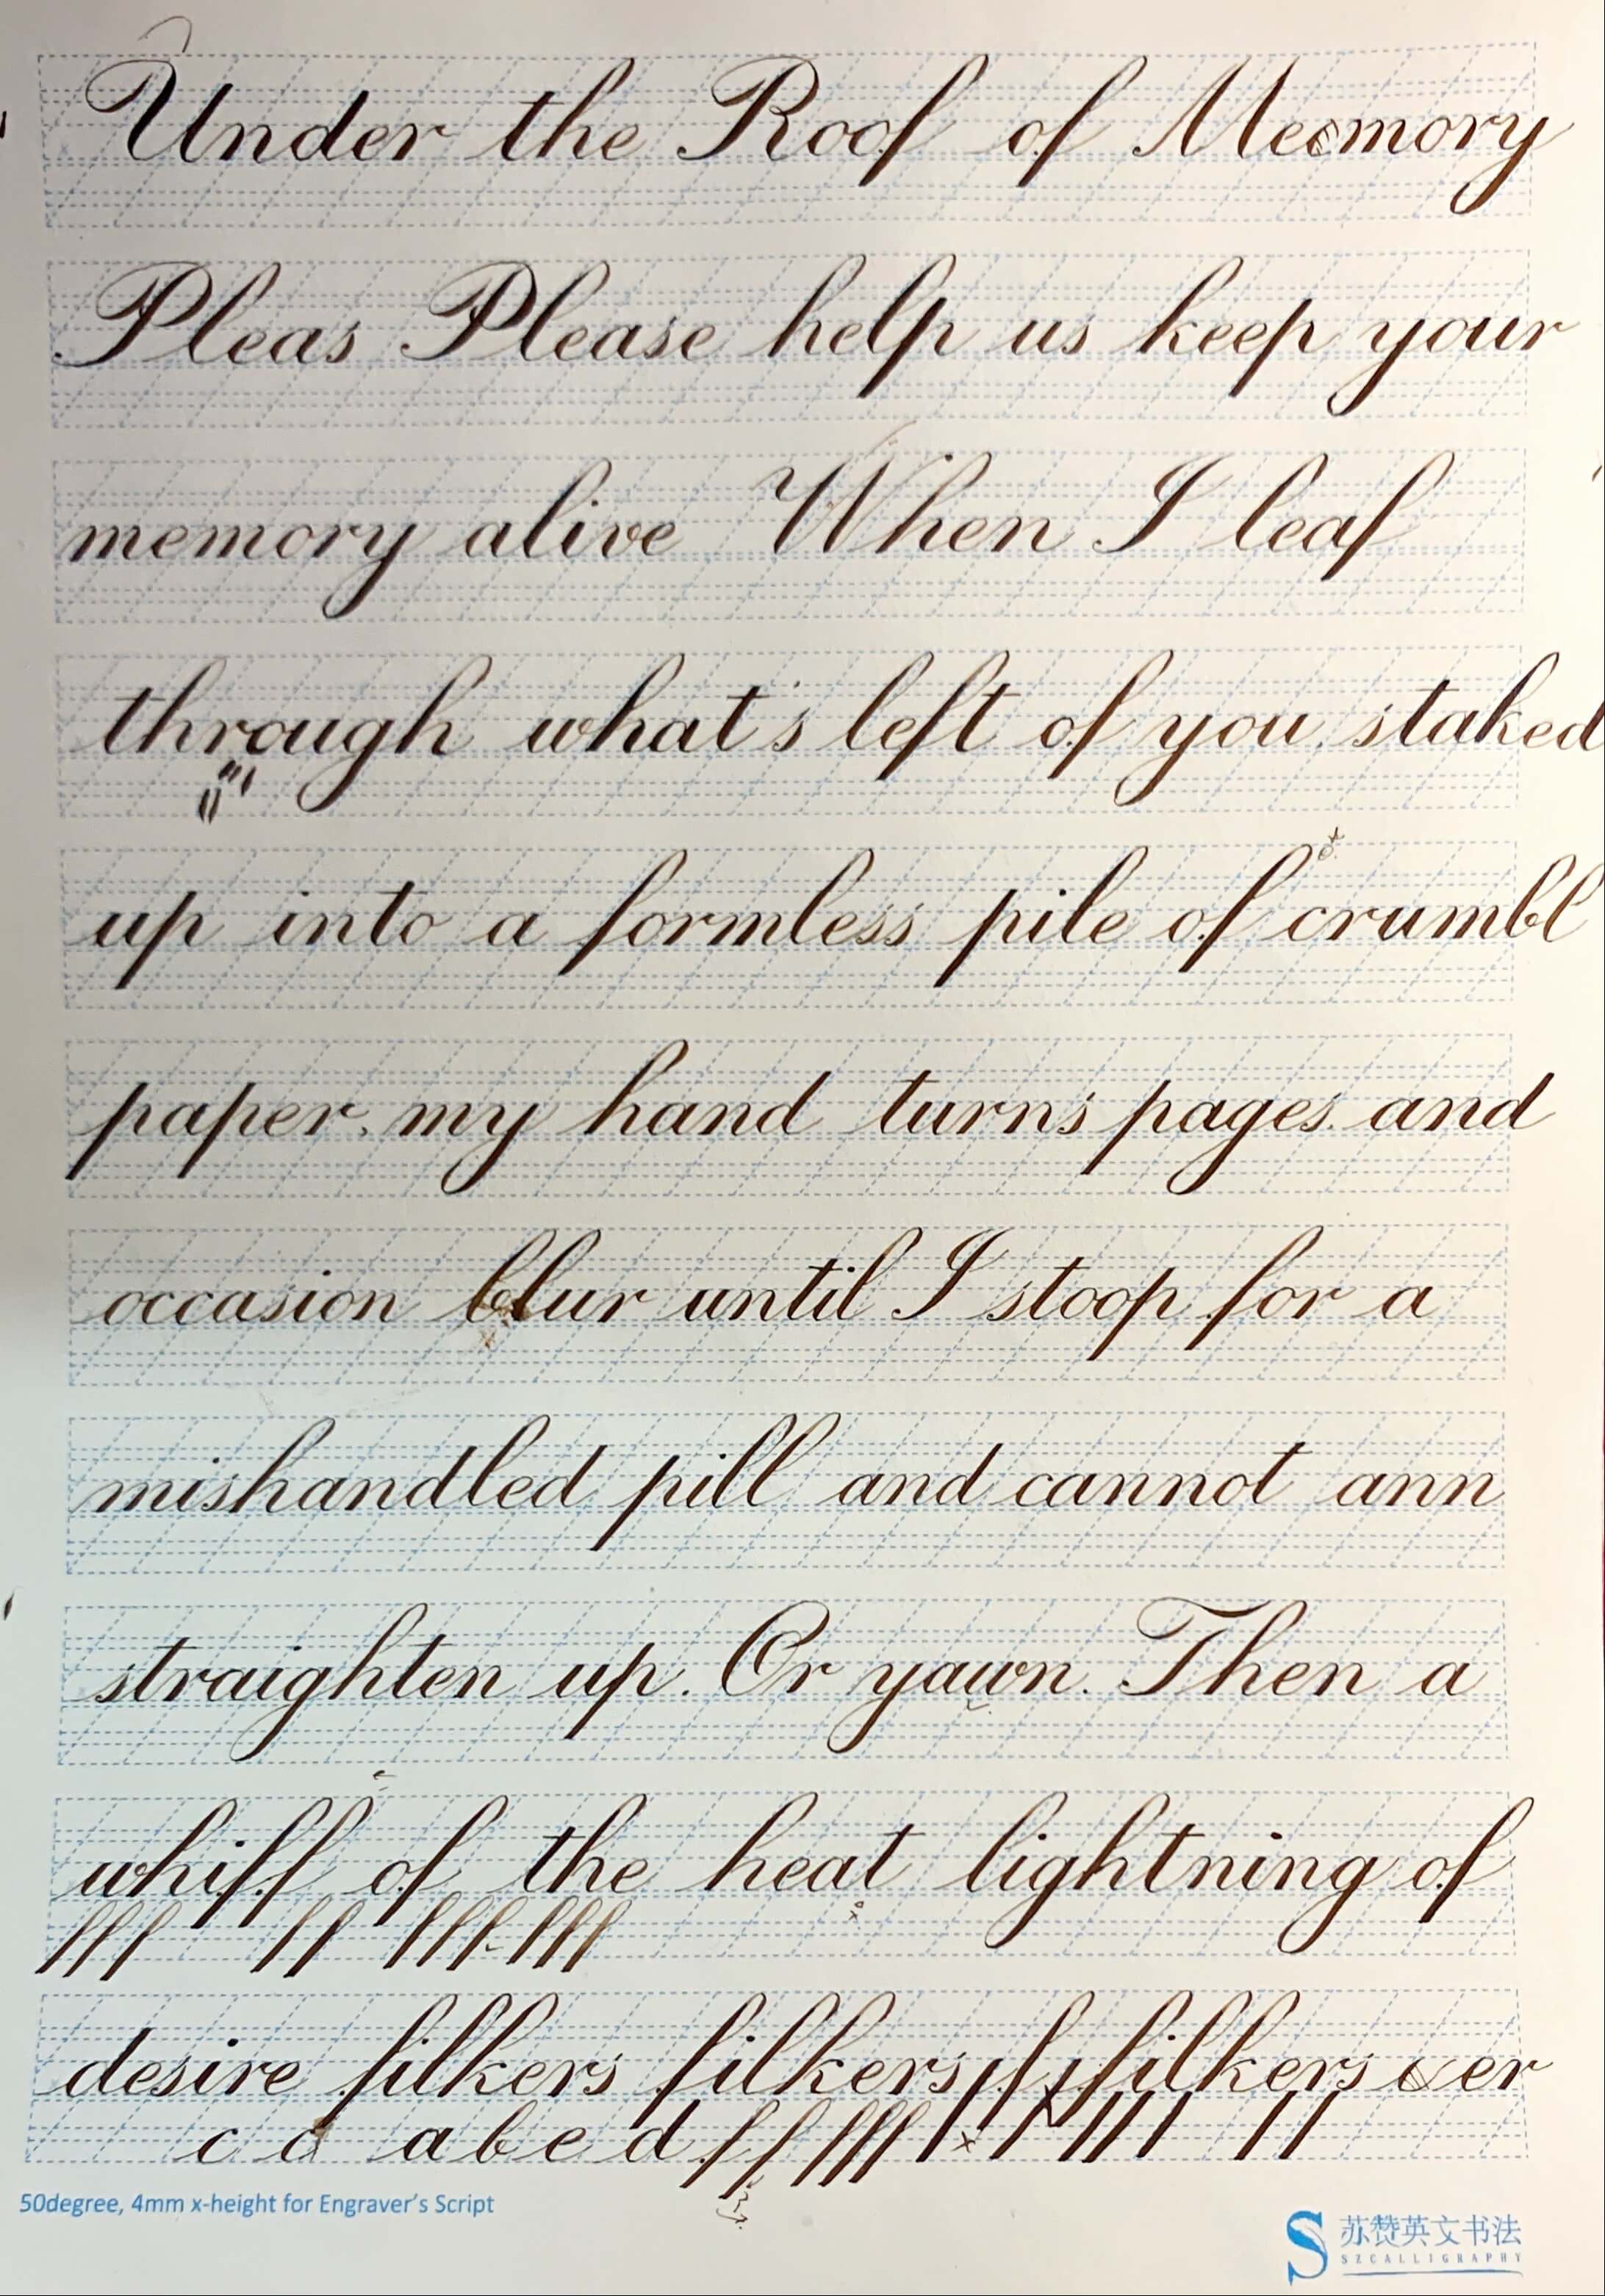 Under the Roof of Meemory
Pleas Please help us keep your
memory alive When I leaf
through what's left of you, staked
up into a formless pile of crumbl
paper, my hand turns pages and
occasion blur until I stoop for a
mishandled pill and cannot ann
straighten up. Or yawn. Then a
whiff of the heat lightning of
desire filkers filkers filkers er
c a abed
50degree, 4mm x-height for Engraver's Script
苏赞英文书法
SZCALLIGRAPHY